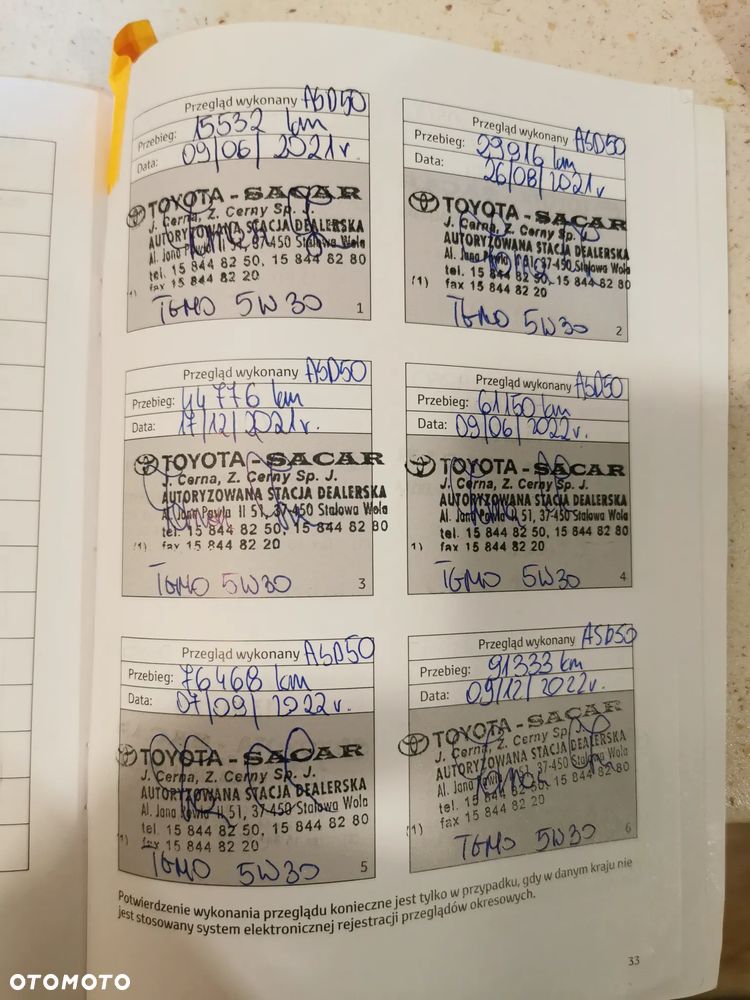 Przegląd wykonany ASD50
Przebieg: 15532 km
Data: 09/06/2021r
TOYOTA - SACAR
J. Cerna, Z. Cerny Sp. J.
AUTORYZOWANA STACJA DEALERSKA
Al. Jana Pawła II 51, 37-450 Stalowa Wola
tel. 15 844 82 50, 15 844 82 80
(1) fax 15 844 82 20
TGMO 5W30
1
Przegląd wykonany ASD50
Przebieg: 29916 km
Data: 26/08/2021r
TOYOTA - SACAR
J. Cerna, Z. Cerny Sp. J.
AUTORYZOWANA STACJA DEALERSKA
Al. Jana Pawła II 51, 37-450 Stalowa Wola
tel. 15 844 82 50, 15 844 82 80
(1) fax 15 844 82 20
TGMO 5W30
2
Przegląd wykonany ASD50
Przebieg: 44776 km
Data: 17/12/2021r.
TOYOTA - SACAR
J. Cerna, Z. Cerny Sp. J.
AUTORYZOWANA STACJA DEALERSKA
Al. Jana Pawla II 51, 37-450 Stalowa Wola
tel. 15 844 82 50, 15 844 82 80
(1) fax 15 844 82 20
TGMO 5W30
3
Przegląd wykonany ASD50
Przebieg: 61150 km
Data: 09/06/2022r.
TOYOTA - SACAR
J. Cerna, Z. Cerny Sp. J.
AUTORYZOWANA STACJA DEALERSKA
Al. Jana Pawła II 51, 37-450 Stalowa Wola
tel. 15 844 82 50, 15 844 82 80
(1) fax 15 844 82 20
TGMO 5W30
4
Przegląd wykonany ASD50
Przebieg: 76468 km
Data: 07/09/2022r.
TOYOTA - SACAR
J. Cerna, Z. Cerny Sp. J.
AUTORYZOWANA STACJA DEALERSKA
Al. Jana Pawła II 51, 37-450 Stalowa Wola
tel. 15 844 82 50, 15 844 82 80
(1) fax 15 844 82 20
TGMO 5W30
5
Przegląd wykonany ASD50
Przebieg: 91333 km
Data: 09/12/2022r.
TOYOTA - SACAR
J. Cerna, Z. Cerny Sp. J.
AUTORYZOWANA STACJA DEALERSKA
Al. Jana Pawła II 51, 37-450 Stalowa Wola
tel. 15 844 82 50, 15 844 82 80
(1) fax 15 844 82 20
TGMO 5W30
6
Potwierdzenie wykonania przeglądu konieczne jest tylko w przypadku, gdy w danym kraju nie
jest stosowany system elektronicznej rejestracji przeglądów okresowych.
33
OTOMOTO